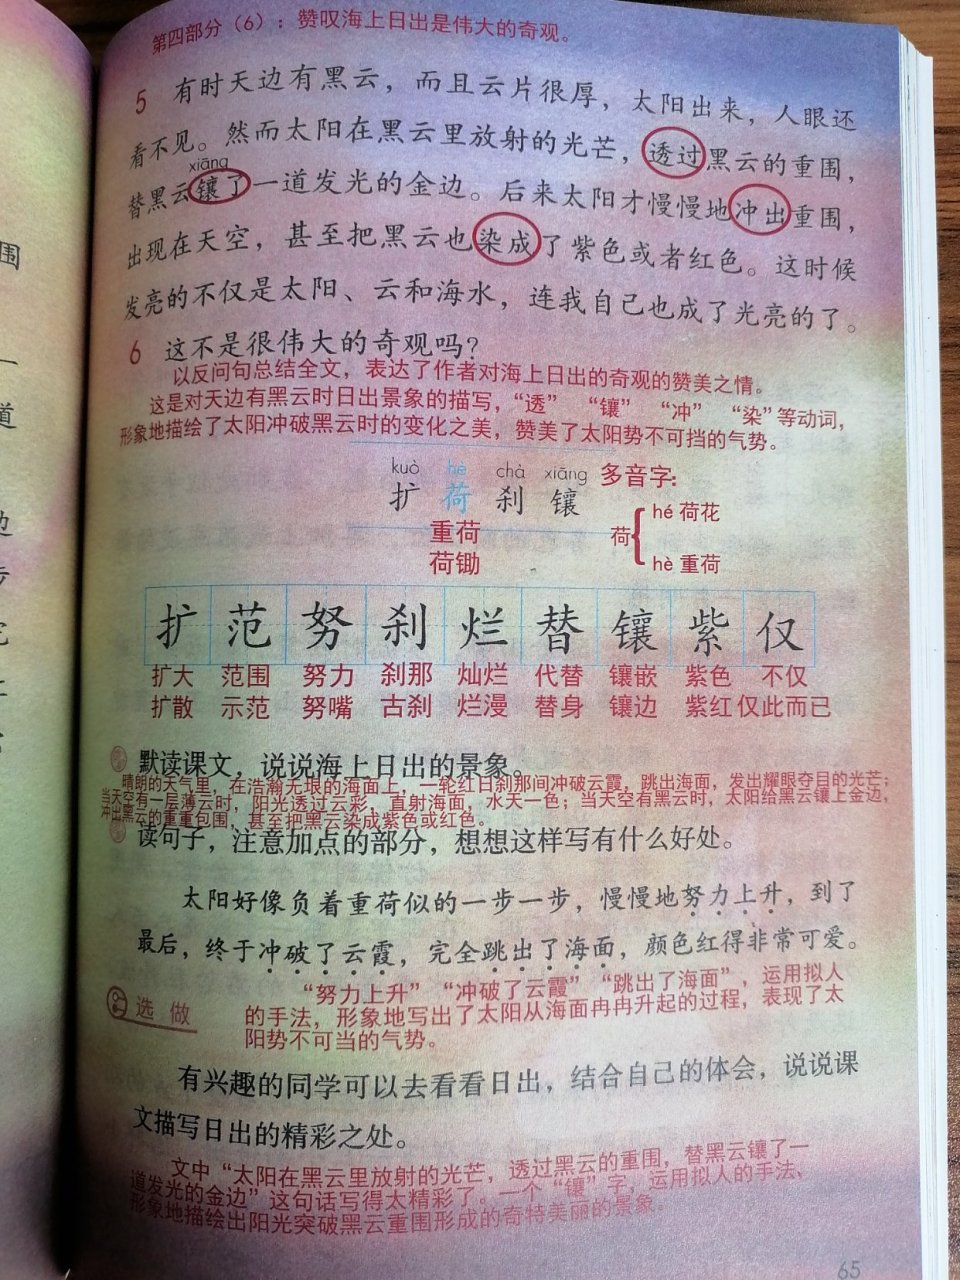 第四部分（6）：赞叹海上日出是伟大的奇观。
5 有时天边有黑云，而且云片很厚，太阳出来，人眼还
看不见。然而太阳在黑云里放射的光芒，透过黑云的重围，
xiāng
替黑云镶了一道发光的金边。后来太阳才慢慢地冲出重围，
出现在天空，甚至把黑云也染成了紫色或者红色。这时候
发亮的不仅是太阳、云和海水，连我自己也成了光亮的了。
6 这不是很伟大的奇观吗？
以反问句总结全文，表达了作者对海上日出的奇观的赞美之情。
这是对天边有黑云时日出景象的描写，“透”“镶”“冲”“染”等动词，
形象地描绘了太阳冲破黑云时的变化之美，赞美了太阳势不可挡的气势。
kuò hè chà xiāng 多音字：
扩 荷 刹 镶
hé 荷花
重荷 荷
荷锄 hè 重荷
扩 范 努 刹 烂 替 镶 紫 仅
扩大 范围 努力 刹那 灿烂 代替 镶嵌 紫色 不仅
扩散 示范 努嘴 古刹 烂漫 替身 镶边 紫红 仅此而已
默读课文，说说海上日出的景象。
晴朗的天气里，在浩瀚无垠的海面上，一轮红日刹那间冲破云霞，跳出海面，发出耀眼夺目的光芒；
当天空有一层薄云时，阳光透过云彩，直射海面，水天一色；当天空有黑云时，太阳给黑云镶上金边，
冲出黑云的重重包围，甚至把黑云染成紫色或红色。
读句子，注意加点的部分，想想这样写有什么好处。
太阳好像负着重荷似的一步一步，慢慢地努力上升，到了
最后，终于冲破了云霞，完全跳出了海面，颜色红得非常可爱。
“努力上升”“冲破了云霞”“跳出了海面”，运用拟人
选做 的手法，形象地写出了太阳从海面冉冉升起的过程，表现了太
阳势不可当的气势。
有兴趣的同学可以去看看日出，结合自己的体会，说说课
文描写日出的精彩之处。
文中“太阳在黑云里放射的光芒，透过黑云的重围，替黑云镶了一
道发光的金边”这句话写得太精彩了。一个“镶”字，运用拟人的手法、
形象地描绘出阳光突破黑云重围形成的奇特美丽的景象。
65